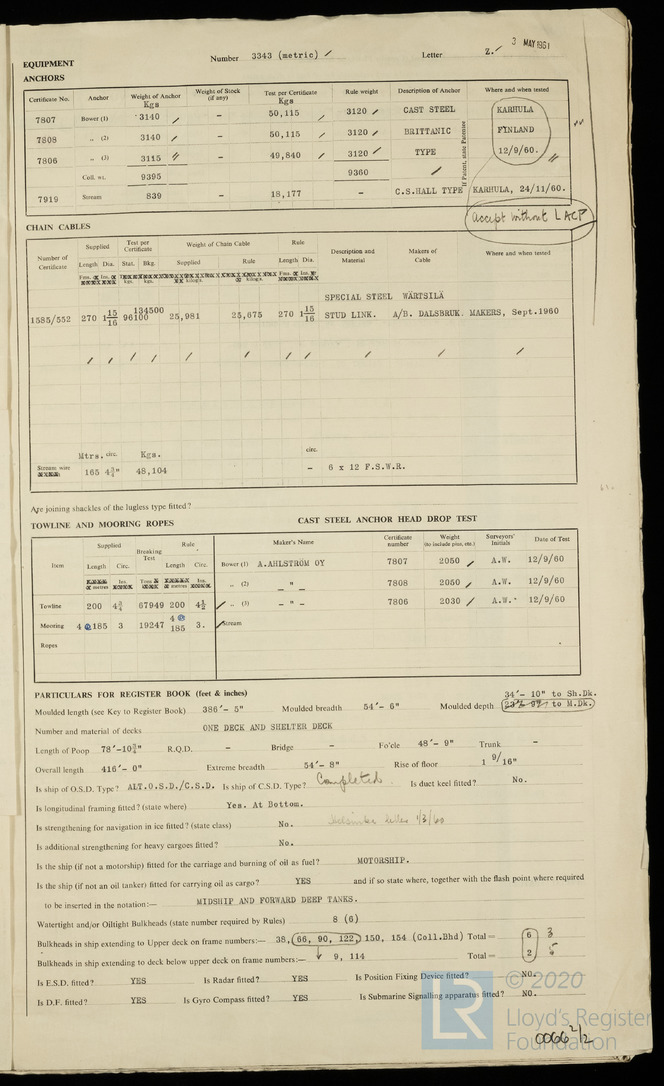 3 MAY 1961
EQUIPMENT Number 3343 (metric) / Letter Z. /
ANCHORS
Certificate No. Anchor Weight of Anchor Kgs Weight of Stock (if any) Test per Certificate Kgs Rule weight Description of Anchor If Patent, state Patentee Where and when tested
7807 Bower (1) 3140 / - 50,115 / 3120 / CAST STEEL KARHULA
7808 „ (2) 3140 / - 50,115 / 3120 / BRITTANIC FINLAND
7806 „ (3) 3115 // - 49,840 / 3120 / TYPE 12/9/60. //
Coll. wt. 9395 9360 /
7919 Stream 839 - 18,177 - C.S.HALL TYPE KARHULA, 24/11/60.
Accept without LACP
CHAIN CABLES
Number of Certificate Supplied Length Dia. Test per Certificate Stat. Bkg. kgs. kgs. Weight of Chain Cable Supplied Rule Rule Length Dia. Description and Material Makers of Cable Where and when tested
SPECIAL STEEL WÄRTSILÄ
1585/552 270 1 15/16 96100 134500 25,981 25,675 270 1 15/16 STUD LINK. A/B. DALSBRUK. MAKERS, Sept.1960
/ / / / / / / / / /
Mtrs. circ. Kgs. circ.
Stream wire 165 4¾" 48,104 - 6 x 12 F.S.W.R.
Are joining shackles of the lugless type fitted?
TOWLINE AND MOORING ROPES CAST STEEL ANCHOR HEAD DROP TEST
Item Supplied Length Circ. Breaking Test Rule Length Circ. Maker's Name Certificate number Weight (to include pins, etc.) Surveyors' Initials Date of Test
Bower (1) A.AHLSTRÖM OY 7807 2050 / A.W. 12/9/60
„ (2) - " - 7808 2050 / A.W. 12/9/60
Towline 200 4¾ 67949 200 4½ / „ (3) - " - 7806 2030 / A.W. 12/9/60
Mooring 4 @ 185 3 19247 4 @ 185 3. / Stream
Ropes
PARTICULARS FOR REGISTER BOOK (feet & inches) 34'- 10" to Sh.Dk.
Moulded length (see Key to Register Book) 386'- 5" Moulded breadth 54'- 6" Moulded depth 23'- 9" to M.Dk.
Number and material of decks ONE DECK AND SHELTER DECK
Length of Poop 78'-10¾" R.Q.D. - Bridge - Fo'cle 48'- 9" Trunk -
Overall length 416'- 0" Extreme breadth 54'- 8" Rise of floor 1 9/16"
Is ship of O.S.D. Type? ALT.O.S.D./C.S.D. Is ship of C.S.D. Type? Completed. Is duct keel fitted? No.
Is longitudinal framing fitted? (state where) Yes. At Bottom.
Is strengthening for navigation in ice fitted? (state class) No. Helsinki letter 1/3/60
Is additional strengthening for heavy cargoes fitted? No.
Is the ship (if not a motorship) fitted for the carriage and burning of oil as fuel? MOTORSHIP.
Is the ship (if not an oil tanker) fitted for carrying oil as cargo? YES and if so state where, together with the flash point where required
to be inserted in the notation:— MIDSHIP AND FORWARD DEEP TANKS.
Watertight and/or Oiltight Bulkheads (state number required by Rules) 8 (6)
Bulkheads in ship extending to Upper deck on frame numbers:— 38, 66, 90, 122, 150, 154 (Coll.Bhd) Total = 6 3
Bulkheads in ship extending to deck below upper deck on frame numbers:— 9, 114 Total = 2 5
Is E.S.D. fitted? YES Is Radar fitted? YES Is Position Fixing Device fitted? NO.
Is D.F. fitted? YES Is Gyro Compass fitted? YES Is Submarine Signalling apparatus fitted? NO.
© 2020
LR Lloyd's Register
Foundation
0066 2/2